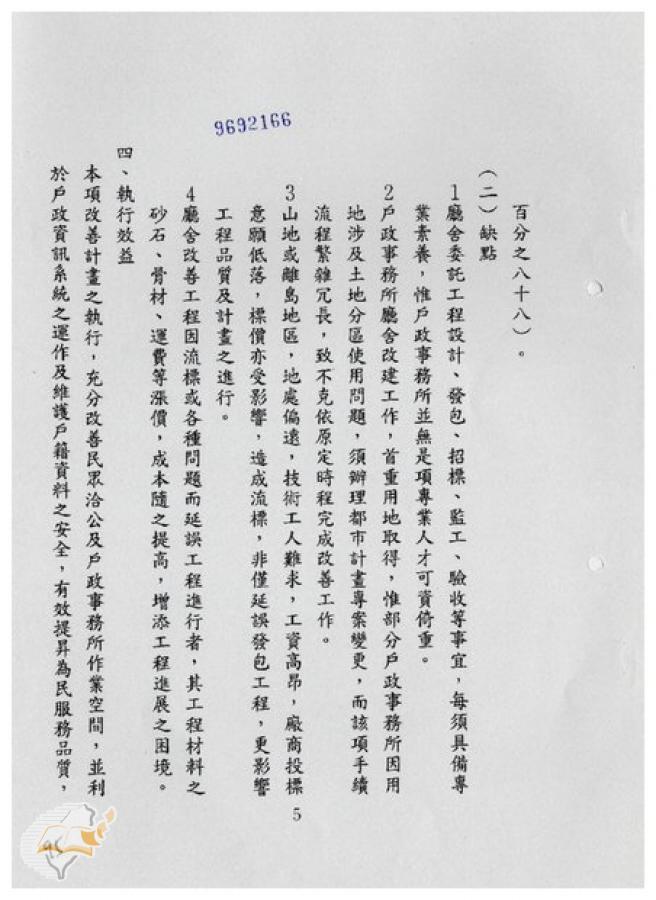 9692166
百分之八十八)。
(二)缺點
1廳舍委託工程設計、發包、招標、監工、驗收等事宜,每須具備專
業素養,惟戶政事務所並無是項專業人才可資倚重。
2戶政事務所廳舍改建工作,首重用地取得,惟部分戶政事務所因用
地涉及土地分區使用問題,須辦理都市計畫專案變更,而該項手續
流程繁雜冗長,致不克依原定時程完成改善工作。
3山地或離島地區,地處偏遠,技術工人難求,工資高昂,廠商投標
意願低落,標價亦受影響,造成流標,非僅延誤發包工程,更影響
工程品質及計畫之進行。
4廳舍改善工程因流標或各種問題而延誤工程進行者,其工程材料之
砂石、骨材、運費等漲價,成本隨之提高,增添工程進展之困境。
四、執行效益
本項改善計畫之執行,充分改善民眾洽公及戶政事務所作業空間,並利
於戶政資訊系統之運作及維護戶籍資料之安全,有效提昇為民服務品質,
5
95